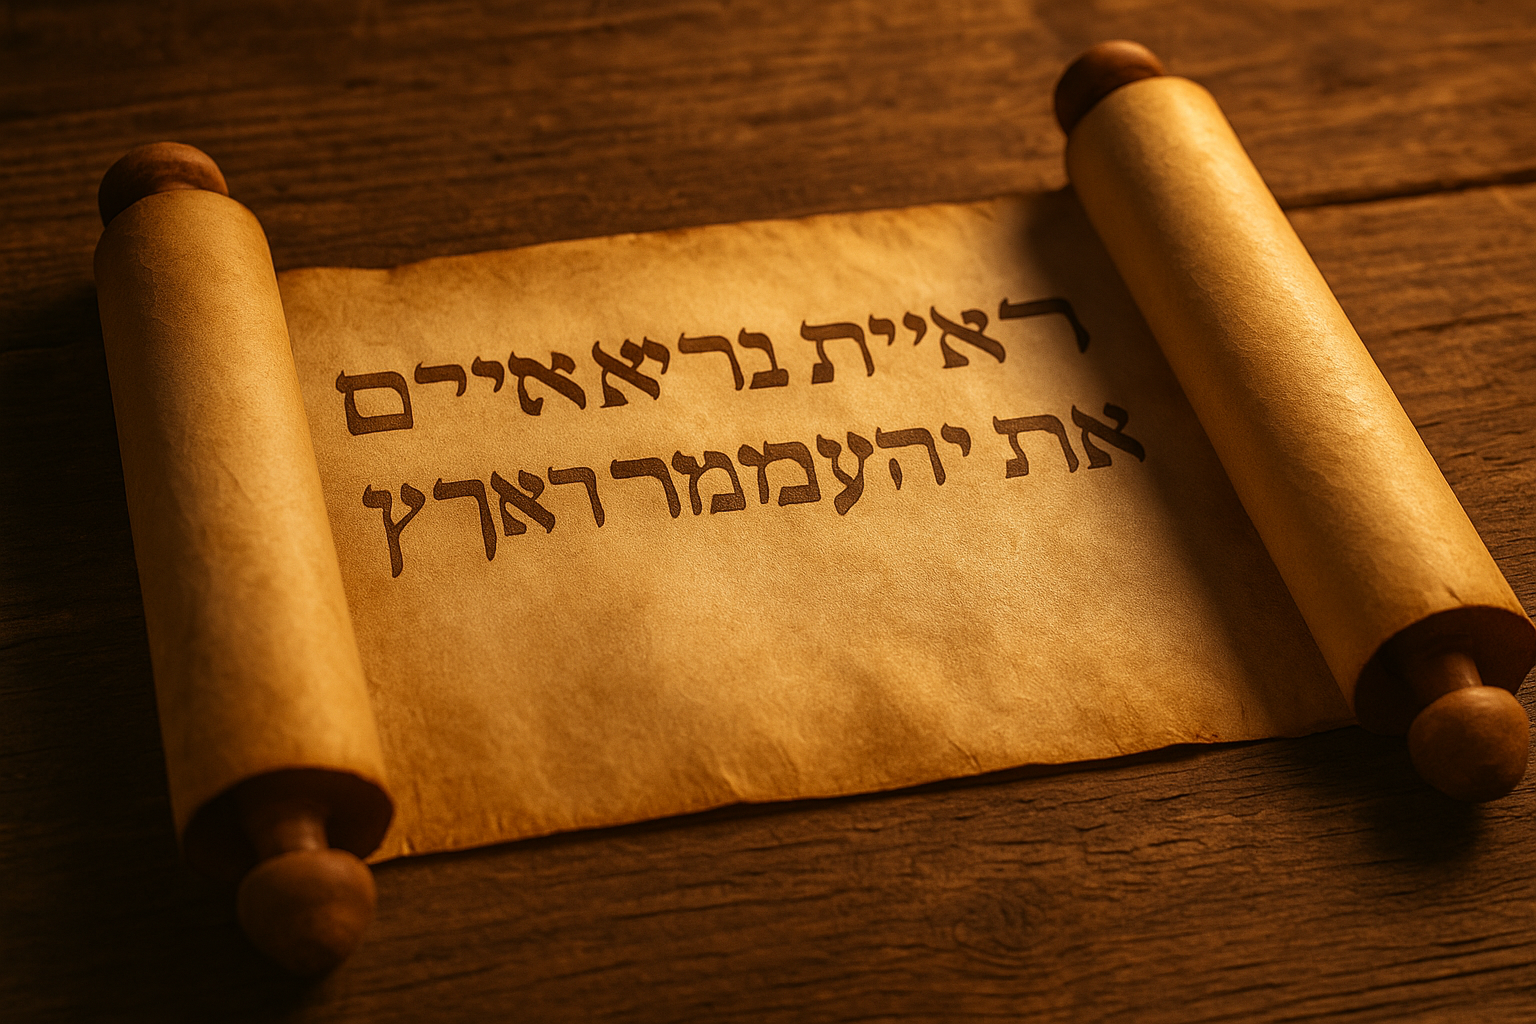 ראיית נראאירם
את יהעממר רארץ